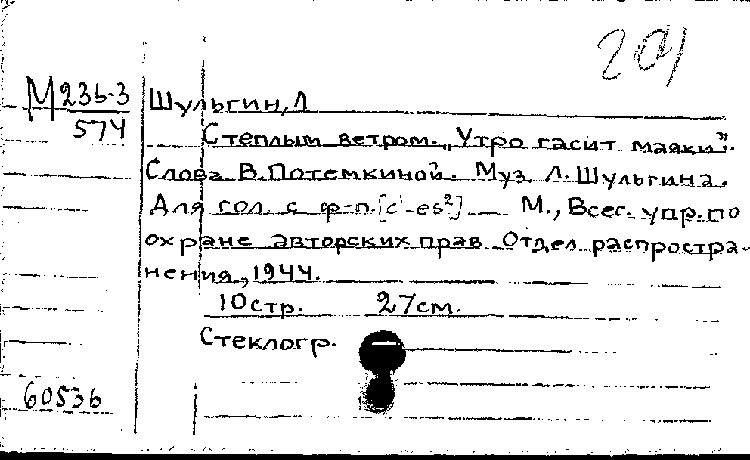 201
М 236-3
574
Шульгин, Л
Степлым ветром. „Утро гасит маяки".
Слова В. Потемкиной. Муз. Л. Шульгина.
Для гол. с ф-п. [c'-es²] — М., Всес. упр. по
охране авторских прав. Отдел распростра-
нения, 1944.
10 стр. 27 см.
Стеклогр.
60536